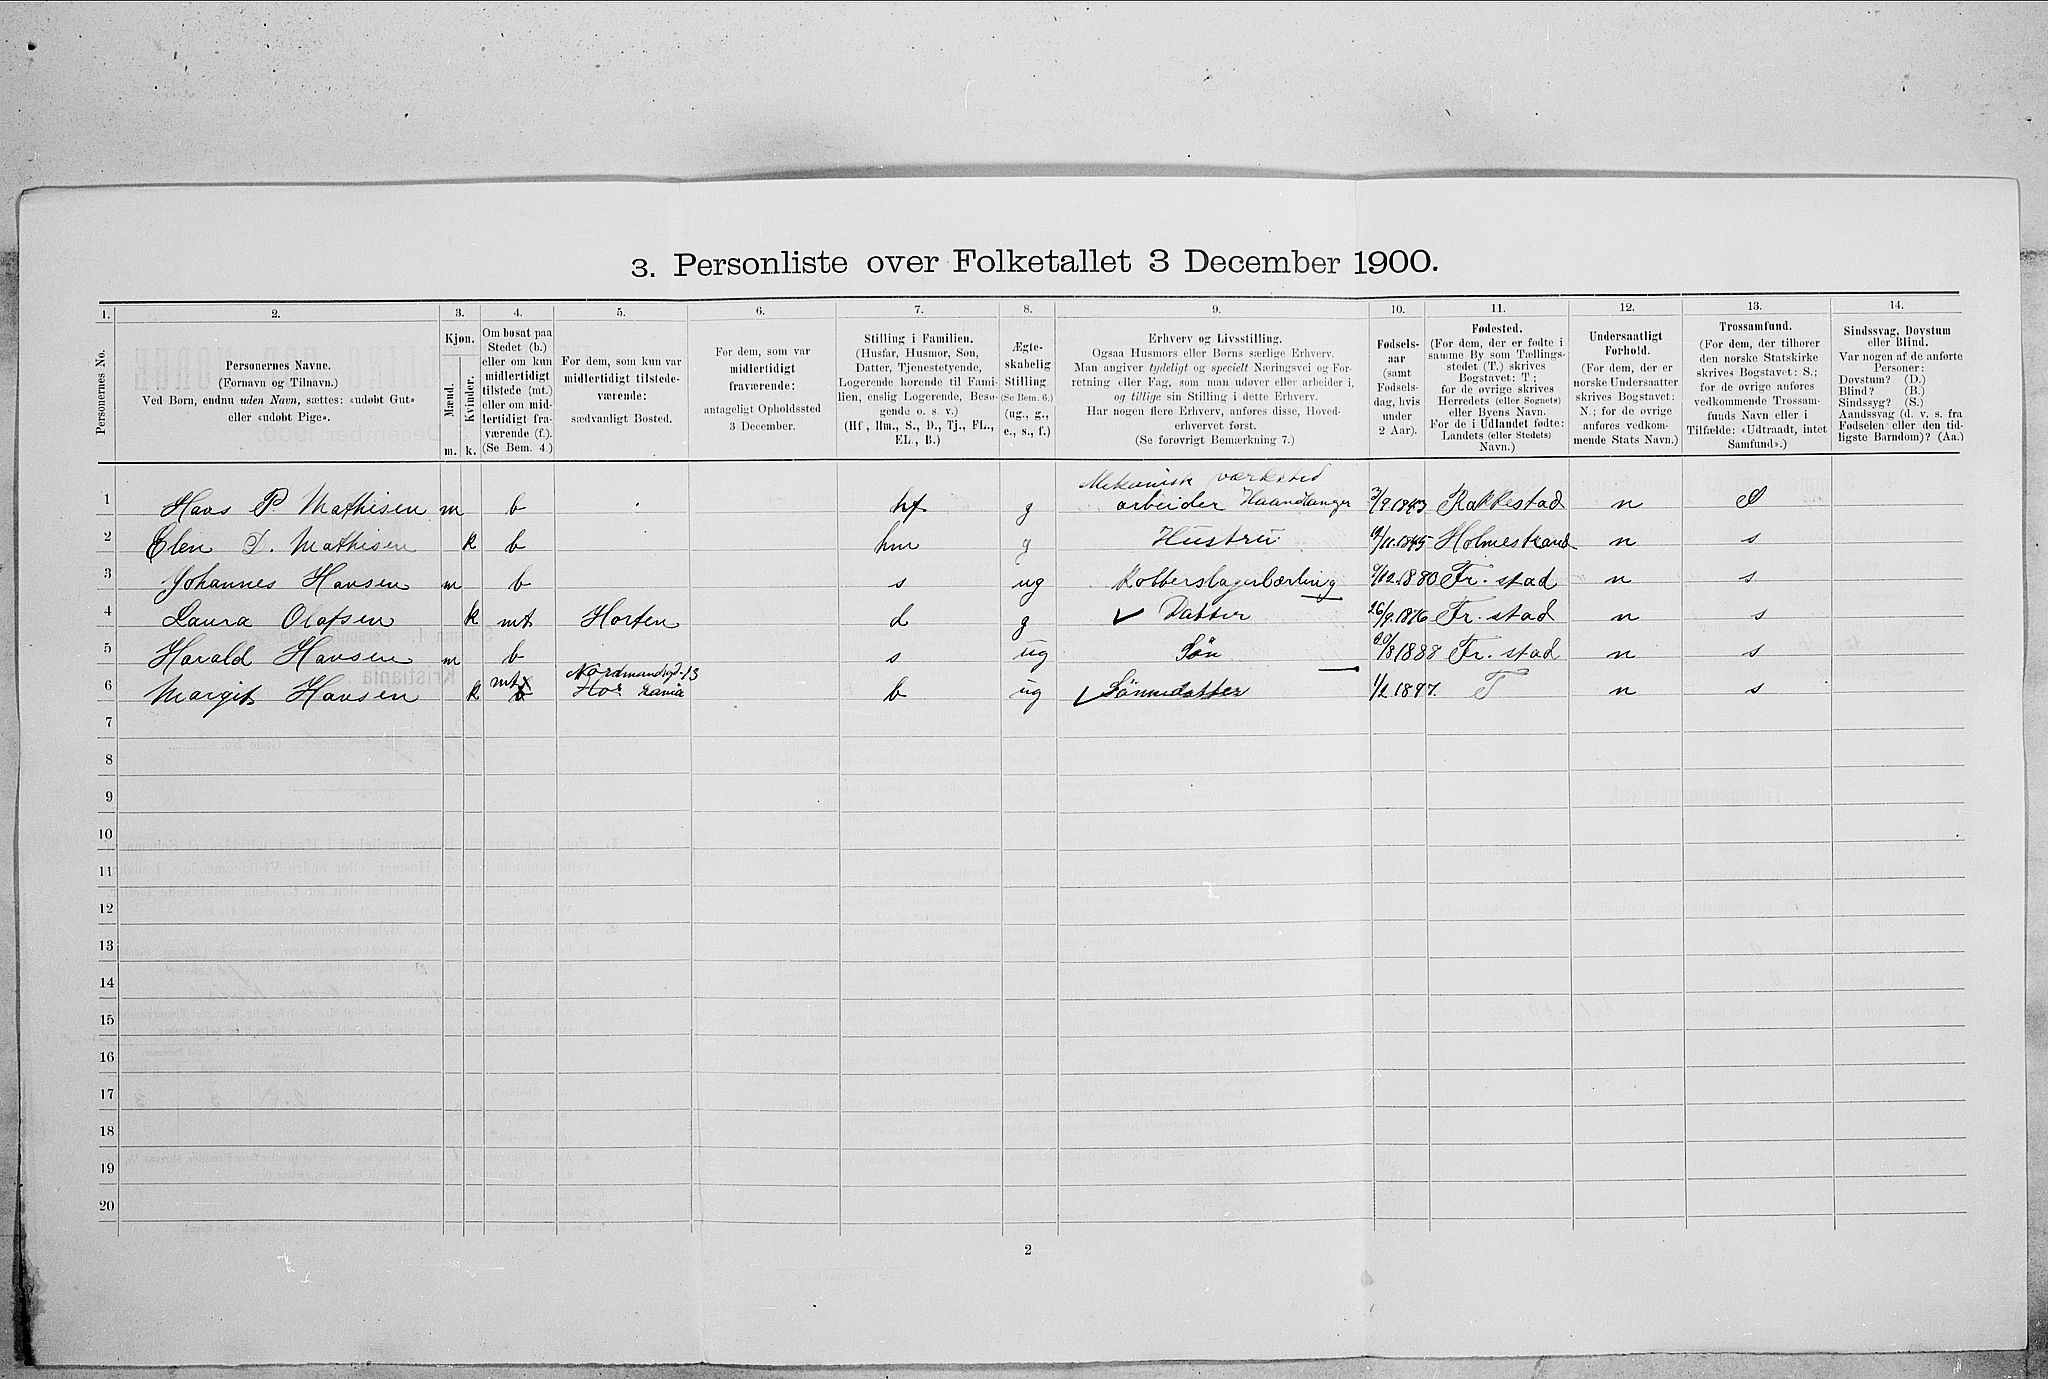 3. Personliste over Folketallet 3 December 1900.
1. 2. 3. 4. 5. 6. 7. 8. 9. 10. 11. 12. 13. 14.
Personernes No.
Personernes Navne.
(Fornavn og Tilnavn.)
Ved Børn, endnu uden Navn, sættes: «udøbt Gut»
eller «udøbt Pige».
Kjøn.
Mænd.
Kvinder.
m. k.
Om bosat paa
Stedet (b.)
eller om kun
midlertidigt
tilstede (mt.)
eller om mid-
lertidigt fra-
værende (f.).
(Se Bem. 4.)
For dem, som kun var
midlertidigt tilstede-
værende:
sædvanligt Bosted.
For dem, som var
midlertidigt
fraværende:
antageligt Opholdssted
3 December.
Stilling i Familien.
(Husfar, Husmor, Søn,
Datter, Tjenestetyende,
Logerende hørende til Fami-
lien, enslig Logerende, Besø-
gende o. s. v.)
(Hf., Hm., S., D., Tj., FL.,
EL., B.)
Ægte-
skabelig
Stilling.
(Se Bem. 6.)
(ug., g.,
e., s., f.)
Erhverv og Livsstilling.
Ogsaa Husmors eller Børns særlige Erhverv.
Man angiver tydeligt og specielt Næringsvei og For-
retning eller Fag, som man udøver eller arbeider i,
og tillige sin Stilling i dette Erhverv.
Har nogen flere Erhverv, anføres disse, Hoved-
erhvervet først.
(Se forøvrigt Bemærkning 7.)
Fødsels-
aar
(samt
Fødsels-
dag, hvis
under
2 Aar).
Fødested.
(For dem, der er fødte i
samme By som Tællings-
stedet (T.) skrives
Bogstavet: T;
for de øvrige skrives
Herredets (eller Sognets)
eller Byens Navn.
For de i Udlandet fødte:
Landets (eller Stedets)
Navn.)
Undersaatligt
Forhold.
(For dem, der er
norske Undersaatter
skrives Bogstavet:
N.; for de øvrige
anføres vedkom-
mende Stats Navn.)
Trossamfund.
(For dem, der tilhører
den norske Statskirke
skrives Bogstavet: S.;
for de øvrige anføres
vedkommende Trossam-
funds Navn eller i
Tilfælde: «Udtraadt, intet
Samfund».)
Sindssvag, Døvstum
eller Blind.
Var nogen af de anførte
Personer:
Døvstum? (D.)
Blind? (B.)
Sindssyg? (S.)
Aandssvag (d. v. s. fra
Fødselen eller den tid-
ligste Barndom)? (Aa.)
Mekanisk værksted
1 Hans P Mathisen m b hf g arbeider Haandlanger 7/9 1843 Rakkestad n S
2 Elen D. Mathisen k b hm g Hustru 1845 Holmestrand n s
3 Johannes Hansen m b s ug Kobberslagerlærling 1880 Fr. stad n s
4 Laura Olafsen k mt Horten d g ✓ Datter 26/9 1876 Fr. stad n s
5 Harald Hansen m b s ug Søn 20/8 1888 Fr. stad n s
6 Margit Hansen k mt b ug ✓ Sønnedatter 1/2 1897. T n s
7
8
9
10
11
12
13
14
15
16
17
18
19
20
2